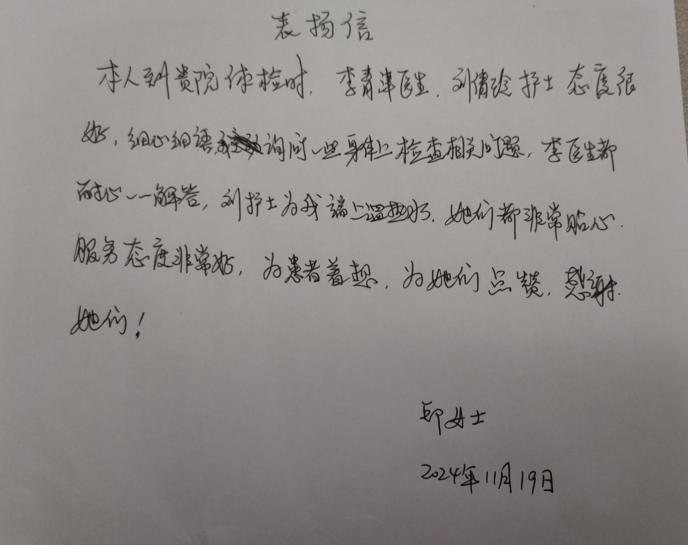 表扬信
本人到贵院体检时，李青津医生，刘倩 护士态度很
好，细心细语 询问一些身体上检查相关问题，李医生都
耐心一一解答，刘护士为我端上温热水，她们都非常贴心，
服务态度非常好，为患者着想，为她们点赞，感谢
她们！
邱女士
2024年11月19日